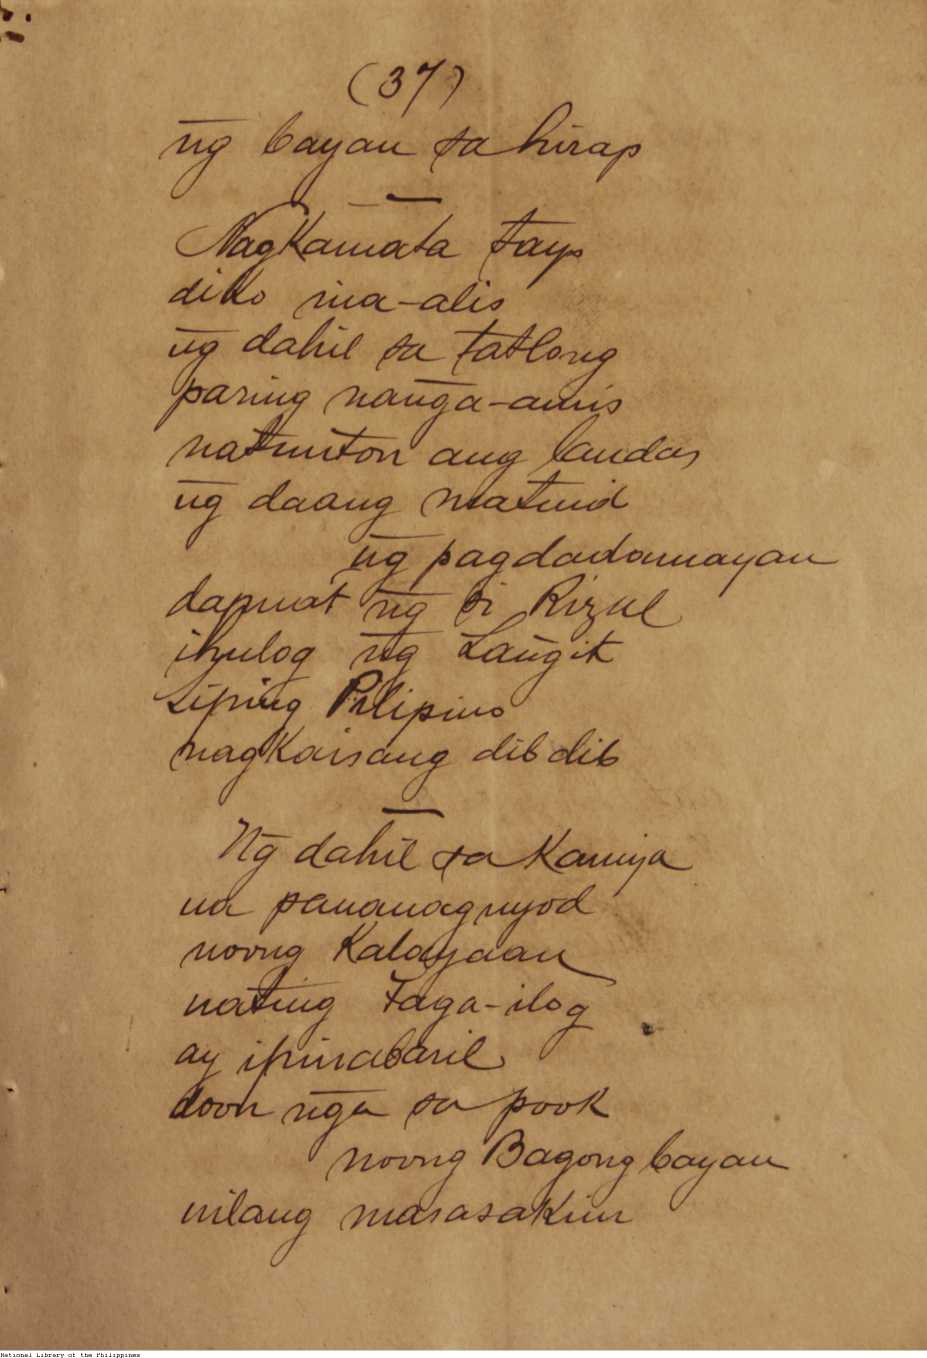 (37)
n͠g bayan sa hirap
Nagkamata tayo
diko ina-alis
n͠g dahil sa tatlong
paring nan͠ga-amis
natunton ang landas
n͠g daang matuid
n͠g pagdadamayan
dapuat n͠g si Rizal
ihulog n͠g Lan͠git
Liping Pilipino
nagkaisang dibdib
N͠g dahil sa kaniya
na pananaguyod
noong Kalayaan
nating Taga-ilog
ay ipinabaril
doon n͠ga sa pook
noong Bagong bayan
nilang masasakim
National Library of the Philippines